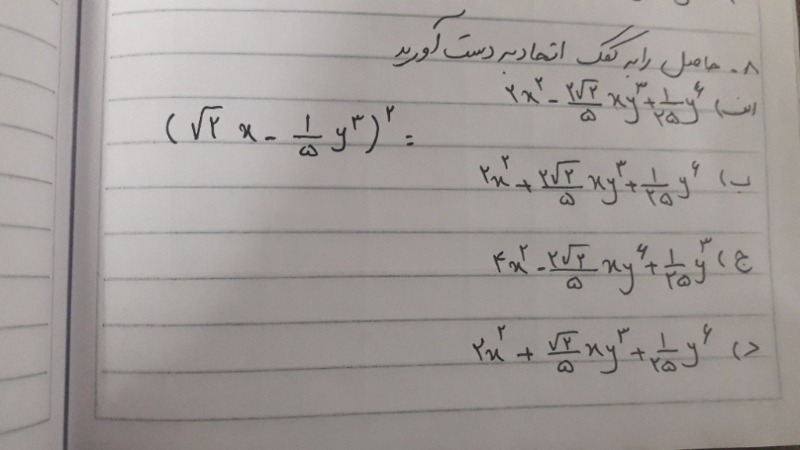 ۸. حاصل را به کمک اتحاد به دست آورید
(√۲ x - ۱/۵ y^۳)^۲ =
الف) ۲x^۲ - ۲√۲/۵ xy^۳ + ۱/۲۵ y^۶
ب) ۲x^۲ + ۲√۲/۵ xy^۳ + ۱/۲۵ y^۶
ج) ۴x^۲ - ۲√۲/۵ xy^۶ + ۱/۲۵ y^۳
د) ۲x^۲ + √۲/۵ xy^۳ + ۱/۲۵ y^۶